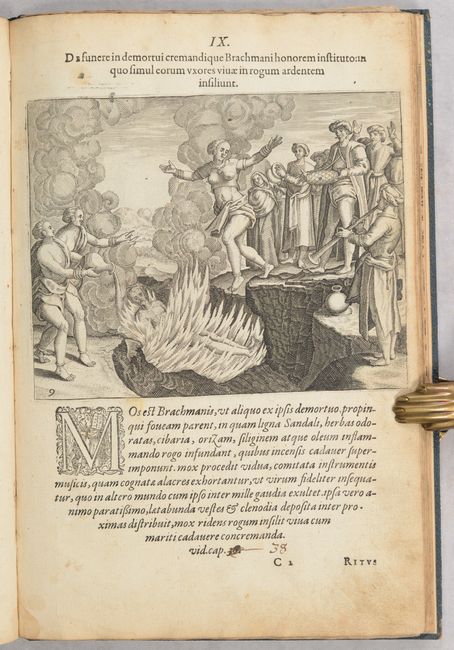 IX.
DE funere in demortui cremandique Brachmani honorem instituto: in
quo simul eorum vxores viuæ in rogum ardentem
insiliunt.
9
MOs est Brachmanis, vt aliquo ex ipsis demortuo, propin-
qui foueam parent, in quam ligna Sandali, herbas odo-
ratas, cibaria, orizam, siliginem atque oleum inflam-
mando rogo infundant, quibus incensis cadauer super-
imponunt. mox procedit vidua, comitata instrumentis
musicis, quam cognatæ alacres exhortantur, vt virum fideliter insequa-
tur, quo in altero mundo cum ipso inter mille gaudia exultet. Ipsa vero a-
nimo paratissimo, lætabunda vestes & clenodia deposita inter pro-
ximas distribuit, mox ridens rogum insilit viua cum
mariti cadauere concremanda.
vid. cap. 38
C 2 RITVS